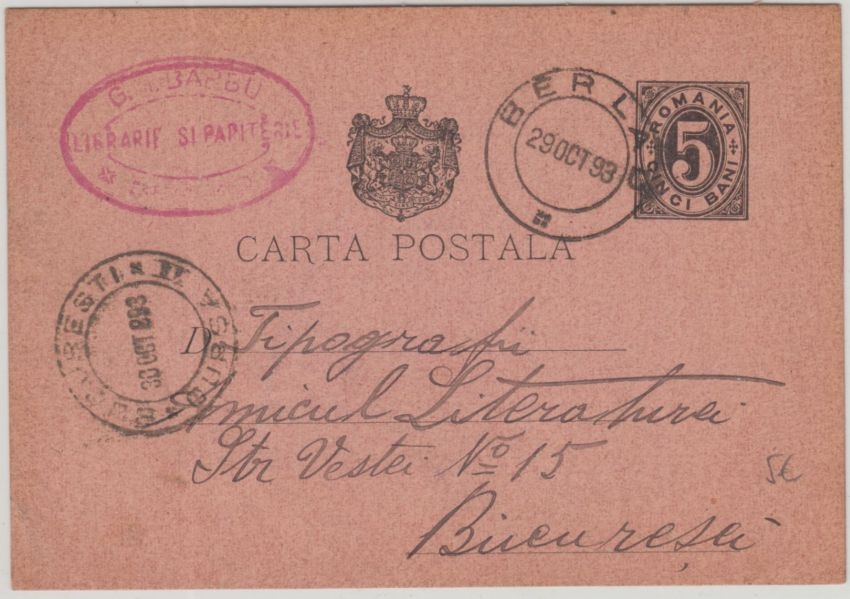 G. I. BARBU
LIBRARIE SI PAPITERIE
BERLAD
29 OCT 93
ROMANIA
5
CINCI BANI
CARTA POSTALA
BUCURESCI BURSA
30 OCT 893
D. Tipografii
Amicul Literaturei
Str Vestei No 15
Bucuresci
5€